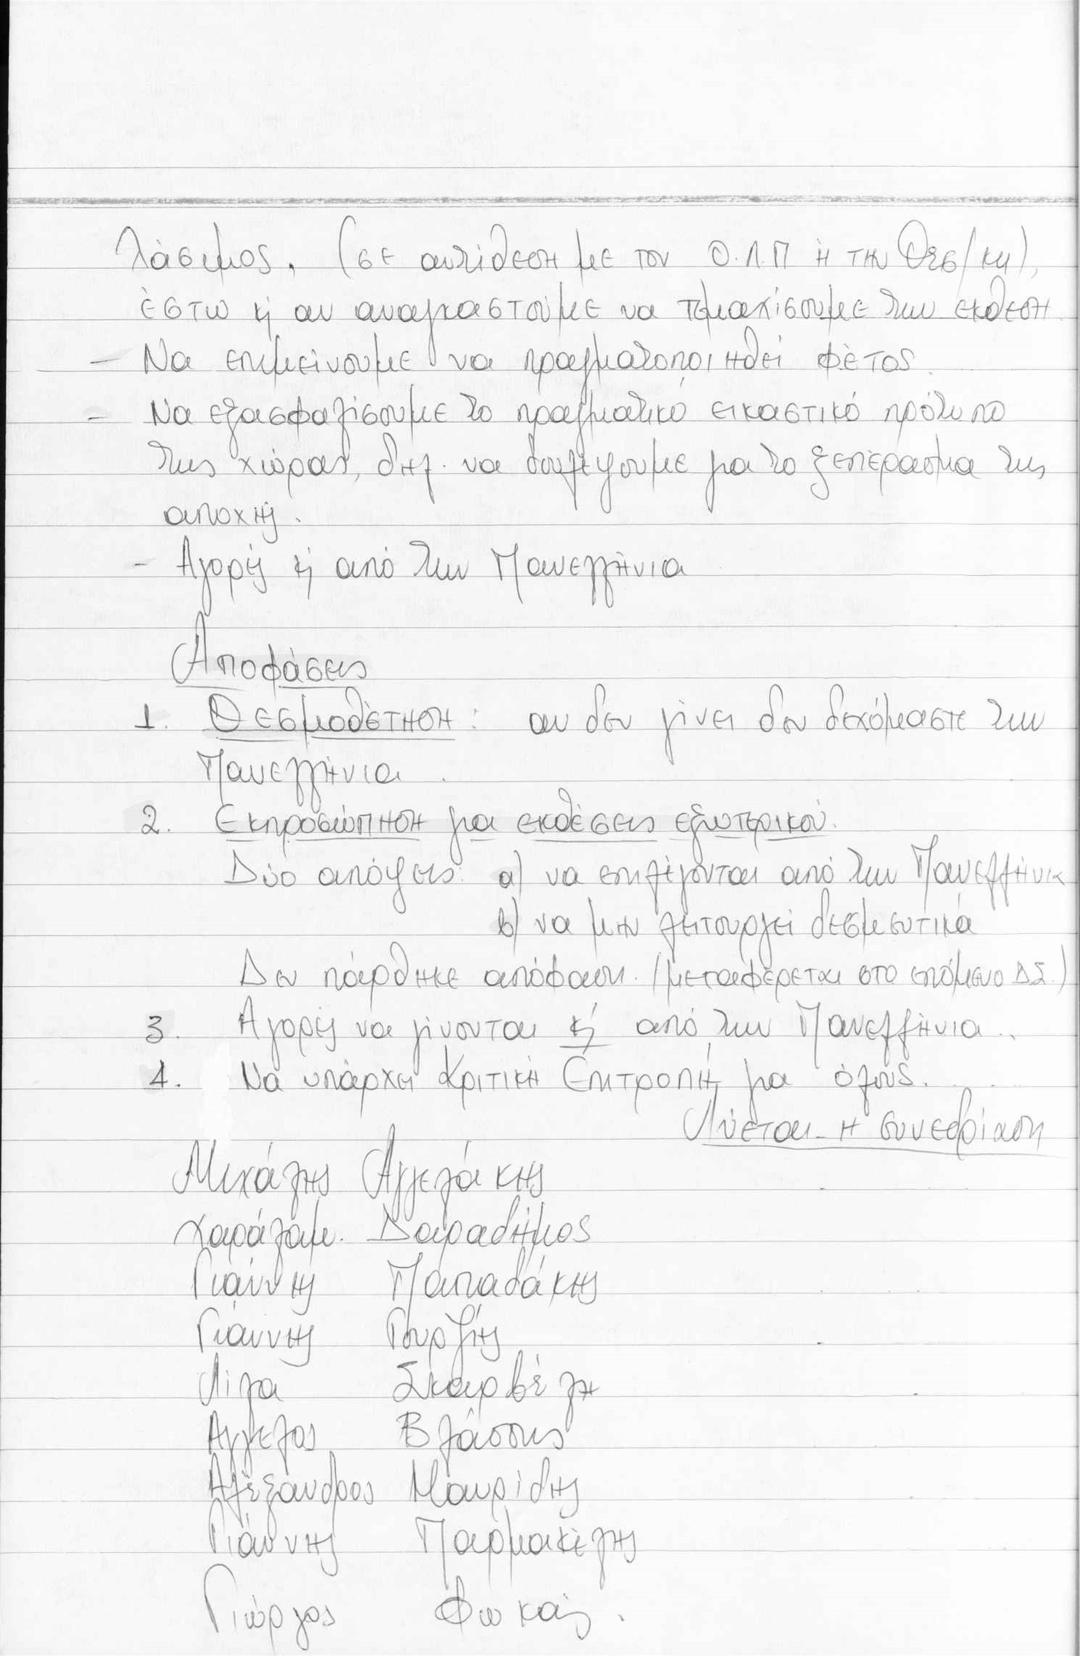 λάσιμος. (σε αντίθεση με τον Ο.Λ.Π ή την Θεσ/κη),
έστω κ αν αναγκαστούμε να τεμαχίσουμε την έκθεση
- Να επιμείνουμε να πραγματοποιηθεί φέτος.
- Να εξασφαλίσουμε το πραγματικό εικαστικό πρότυπο
της χώρας, δηλ. να δουλέψουμε για το ξεπέρασμα της
αποχής.
- Αγορές κ από την Πανελλήνια
Αποφάσεις
1. Θεσμοθέτηση: αν δεν γίνει δεν δεχόμαστε την
Πανελλήνια.
2. Εκπροσώπηση για εκθέσεις εξωτερικού.
Δύο απόψεις: α) να επιλέγονται από την Πανελλήνια
β) να μην λειτουργεί δεσμευτικά
Δεν πάρθηκε απόφαση. (μεταφέρεται στο επόμενο Δ.Σ.)
3. Αγορές να γίνονται κ από την Πανελλήνια..
4. Να υπάρχει Κριτική Επιτροπή για όλους.
Λύεται η συνεδρίαση
Μιχάλης Αγγελάκης
Χαράλαμ. Δαραδήμος
Γιάννης Παπαδάκης
Γιάννης Γουρζής
Λίλα Σκαρβέλη
Άγγελος Βλάσσης
Αλέξανδρος Μαυρίδης
Γιάννης Παρμακέλης
Γιώργος Φωκάς.